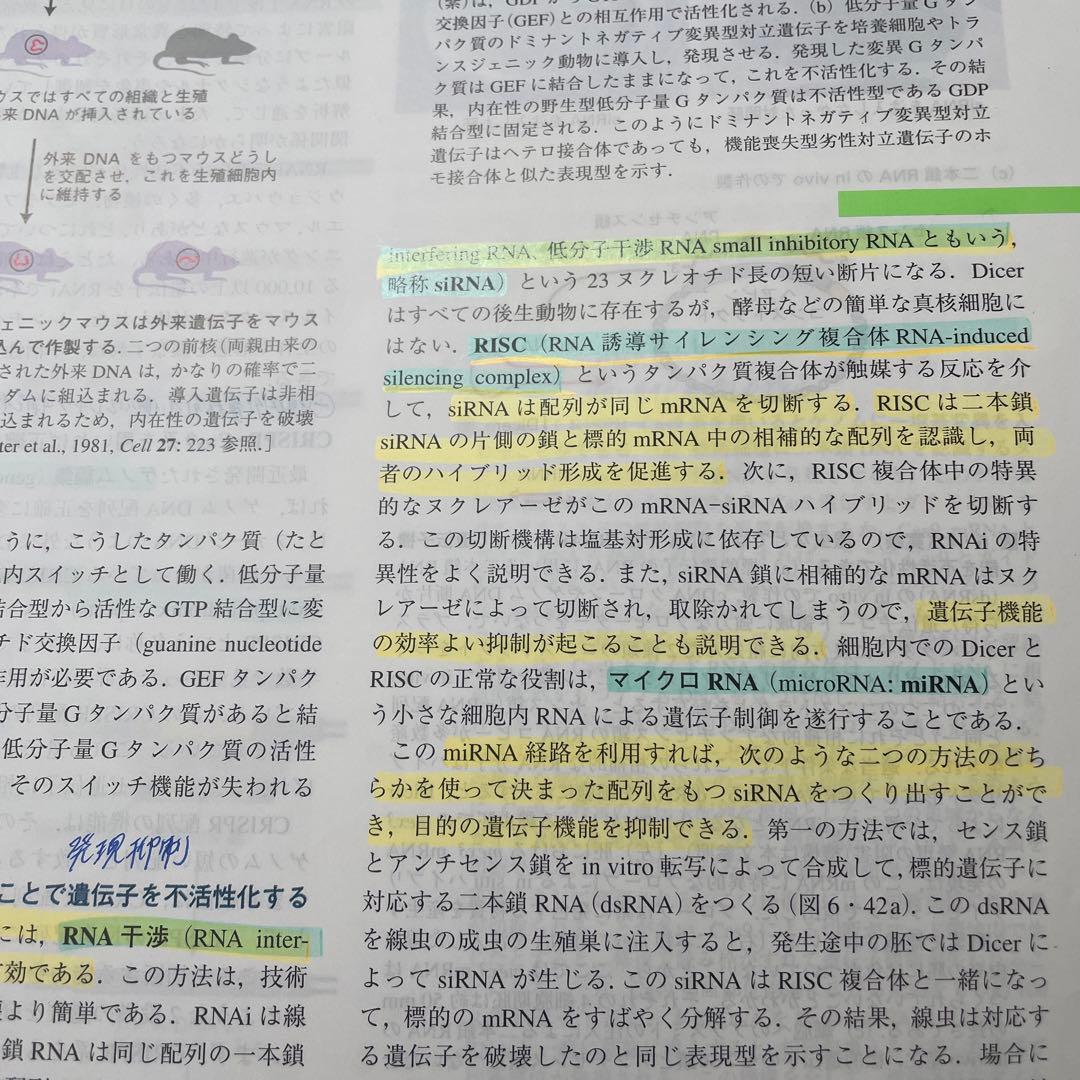 ウスではすべての組織と生殖
来 DNA が挿入されている
外来 DNA をもつマウスどうし
を交配させ，これを生殖細胞内
に維持する
ェニックマウスは外来遺伝子をマウス
込んで作製する．二つの前核（両親由来の
された外来 DNA は，かなりの確率で二
ダムに組込まれる．導入遺伝子は非相
込まれるため，内在性の遺伝子を破壊
ter et al., 1981, Cell 27: 223 参照．］
うに，こうしたタンパク質（たと
内スイッチとして働く．低分子量
結合型から活性な GTP 結合型に変
チド交換因子（guanine nucleotide
作用が必要である．GEF タンパク
分子量 G タンパク質があると結
低分子量 G タンパク質の活性
そのスイッチ機能が失われる
発現抑制
ことで遺伝子を不活性化する
には，RNA 干渉（RNA inter-
有効である．この方法は，技術
より簡単である．RNAi は線
鎖 RNA は同じ配列の一本鎖
交換因子（GEF）との相互作用で活性化される．（b）低分子量 G タン
パク質のドミナントネガティブ変異型対立遺伝子を培養細胞やトラ
ンスジェニック動物に導入し，発現させる．発現した変異 G タンパ
ク質は GEF に結合したままになって，これを不活性化する．その結
果，内在性の野生型低分子量 G タンパク質は不活性型である GDP
結合型に固定される．このようにドミナントネガティブ変異型対立
遺伝子はヘテロ接合体であっても，機能喪失型劣性対立遺伝子のホ
モ接合体と似た表現型を示す．
interfering RNA，低分子干渉 RNA small inhibitory RNA ともいう，
略称 siRNA）という 23 ヌクレオチド長の短い断片になる．Dicer
はすべての後生動物に存在するが，酵母などの簡単な真核細胞に
はない．RISC（RNA 誘導サイレンシング複合体 RNA-induced
silencing complex）というタンパク質複合体が触媒する反応を介
して，siRNA は配列が同じ mRNA を切断する．RISC は二本鎖
siRNA の片側の鎖と標的 mRNA 中の相補的な配列を認識し，両
者のハイブリッド形成を促進する．次に，RISC 複合体中の特異
的なヌクレアーゼがこの mRNA–siRNA ハイブリッドを切断す
る．この切断機構は塩基対形成に依存しているので，RNAi の特
異性をよく説明できる．また，siRNA 鎖に相補的な mRNA はヌク
レアーゼによって切断され，取除かれてしまうので，遺伝子機能
の効率よい抑制が起こることも説明できる．細胞内での Dicer と
RISC の正常な役割は，マイクロ RNA（microRNA: miRNA）とい
う小さな細胞内 RNA による遺伝子制御を遂行することである．
この miRNA 経路を利用すれば，次のような二つの方法のどち
らかを使って決まった配列をもつ siRNA をつくり出すことがで
き，目的の遺伝子機能を抑制できる．第一の方法では，センス鎖
とアンチセンス鎖を in vitro 転写によって合成して，標的遺伝子に
対応する二本鎖 RNA（dsRNA）をつくる（図 6・42a）．この dsRNA
を線虫の成虫の生殖巣に注入すると，発生途中の胚では Dicer に
よって siRNA が生じる．この siRNA は RISC 複合体と一緒になっ
て，標的の mRNA をすばやく分解する．その結果，線虫は対応す
る遺伝子を破壊したのと同じ表現型を示すことになる．場合に